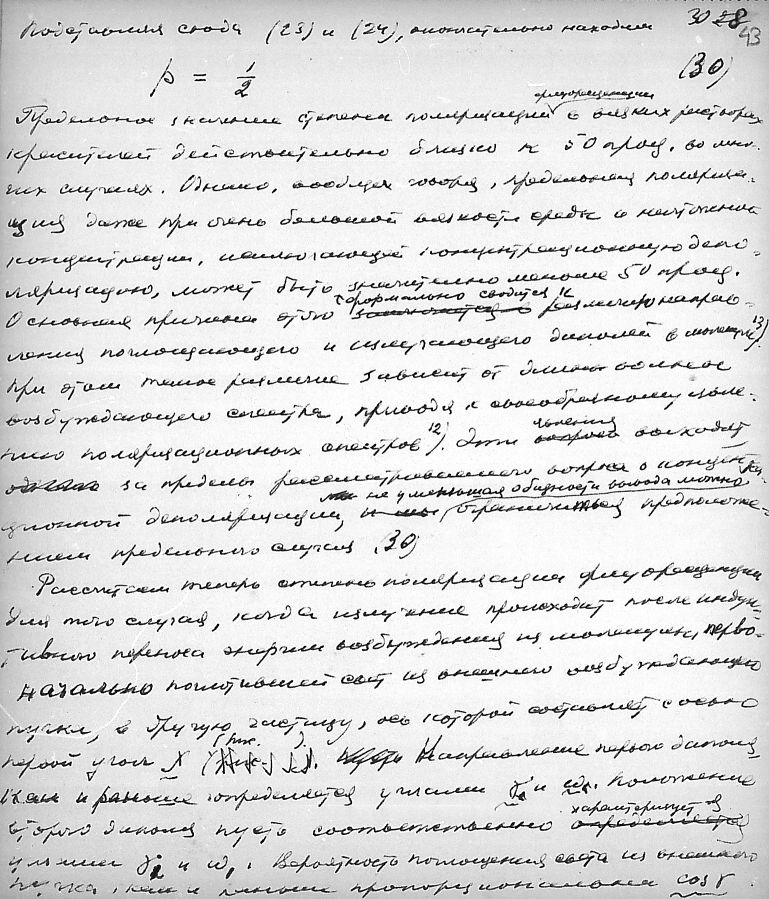 30 28
43
Подставляя сюда (23) и (24), окончательно находим
p = 1/2 (30)
флуоресценции
Предельное значение степени поляризации в вязких растворах
красителей действительно близко к 50 проц. во мно-
гих случаях. Однако, вообще говоря, предельная поляриза-
ция даже при очень большой вязкости среды и ничтожной
концентрации, исключающей концентрационную депо-
ляризацию, может быть значительно меньше 50 проц.
формально сводится к
Основная причина этого различию направ-
ления поглощающего и излучающего диполей в молекуле 13)
при этом такое различие зависит от длины волны
возбуждающего спектра, приводя к своеобразному явле-
нию поляризационных спектров 12). Эти явления вопросы выходят
за пределы рассматриваемого вопроса о концентра-
не уменьшая общности вывода можно
ционной деполяризации, и мы ограничиться предположе-
нием предельного случая (30)
Рассчитаем теперь степень поляризации флуоресценции
для того случая, когда излучение происходит после индук-
тивного переноса энергии возбуждения из молекулы, перво-
начально поглотившей свет из внешнего возбуждающего
пучка, в другую частицу, ось которой составляет с осью
первой угол Направление первого диполя
как и раньше определяется углами γ и ω. Положение
характеризуется
второго диполя пусть соответственно определяется
углами γ и ω. Вероятность поглощения света из внешнего
пучка, как и раньше пропорциональна cos γ.